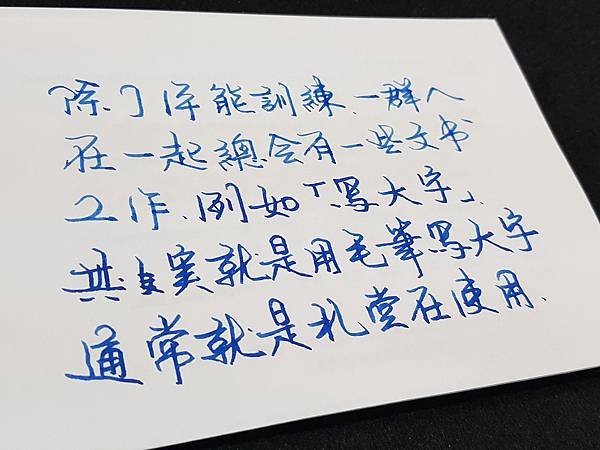 除了体能訓練、一群人
在一起總会有一些文书
工作、例如「写大字」、
其实就是用毛筆写大字
通常就是礼堂在使用.